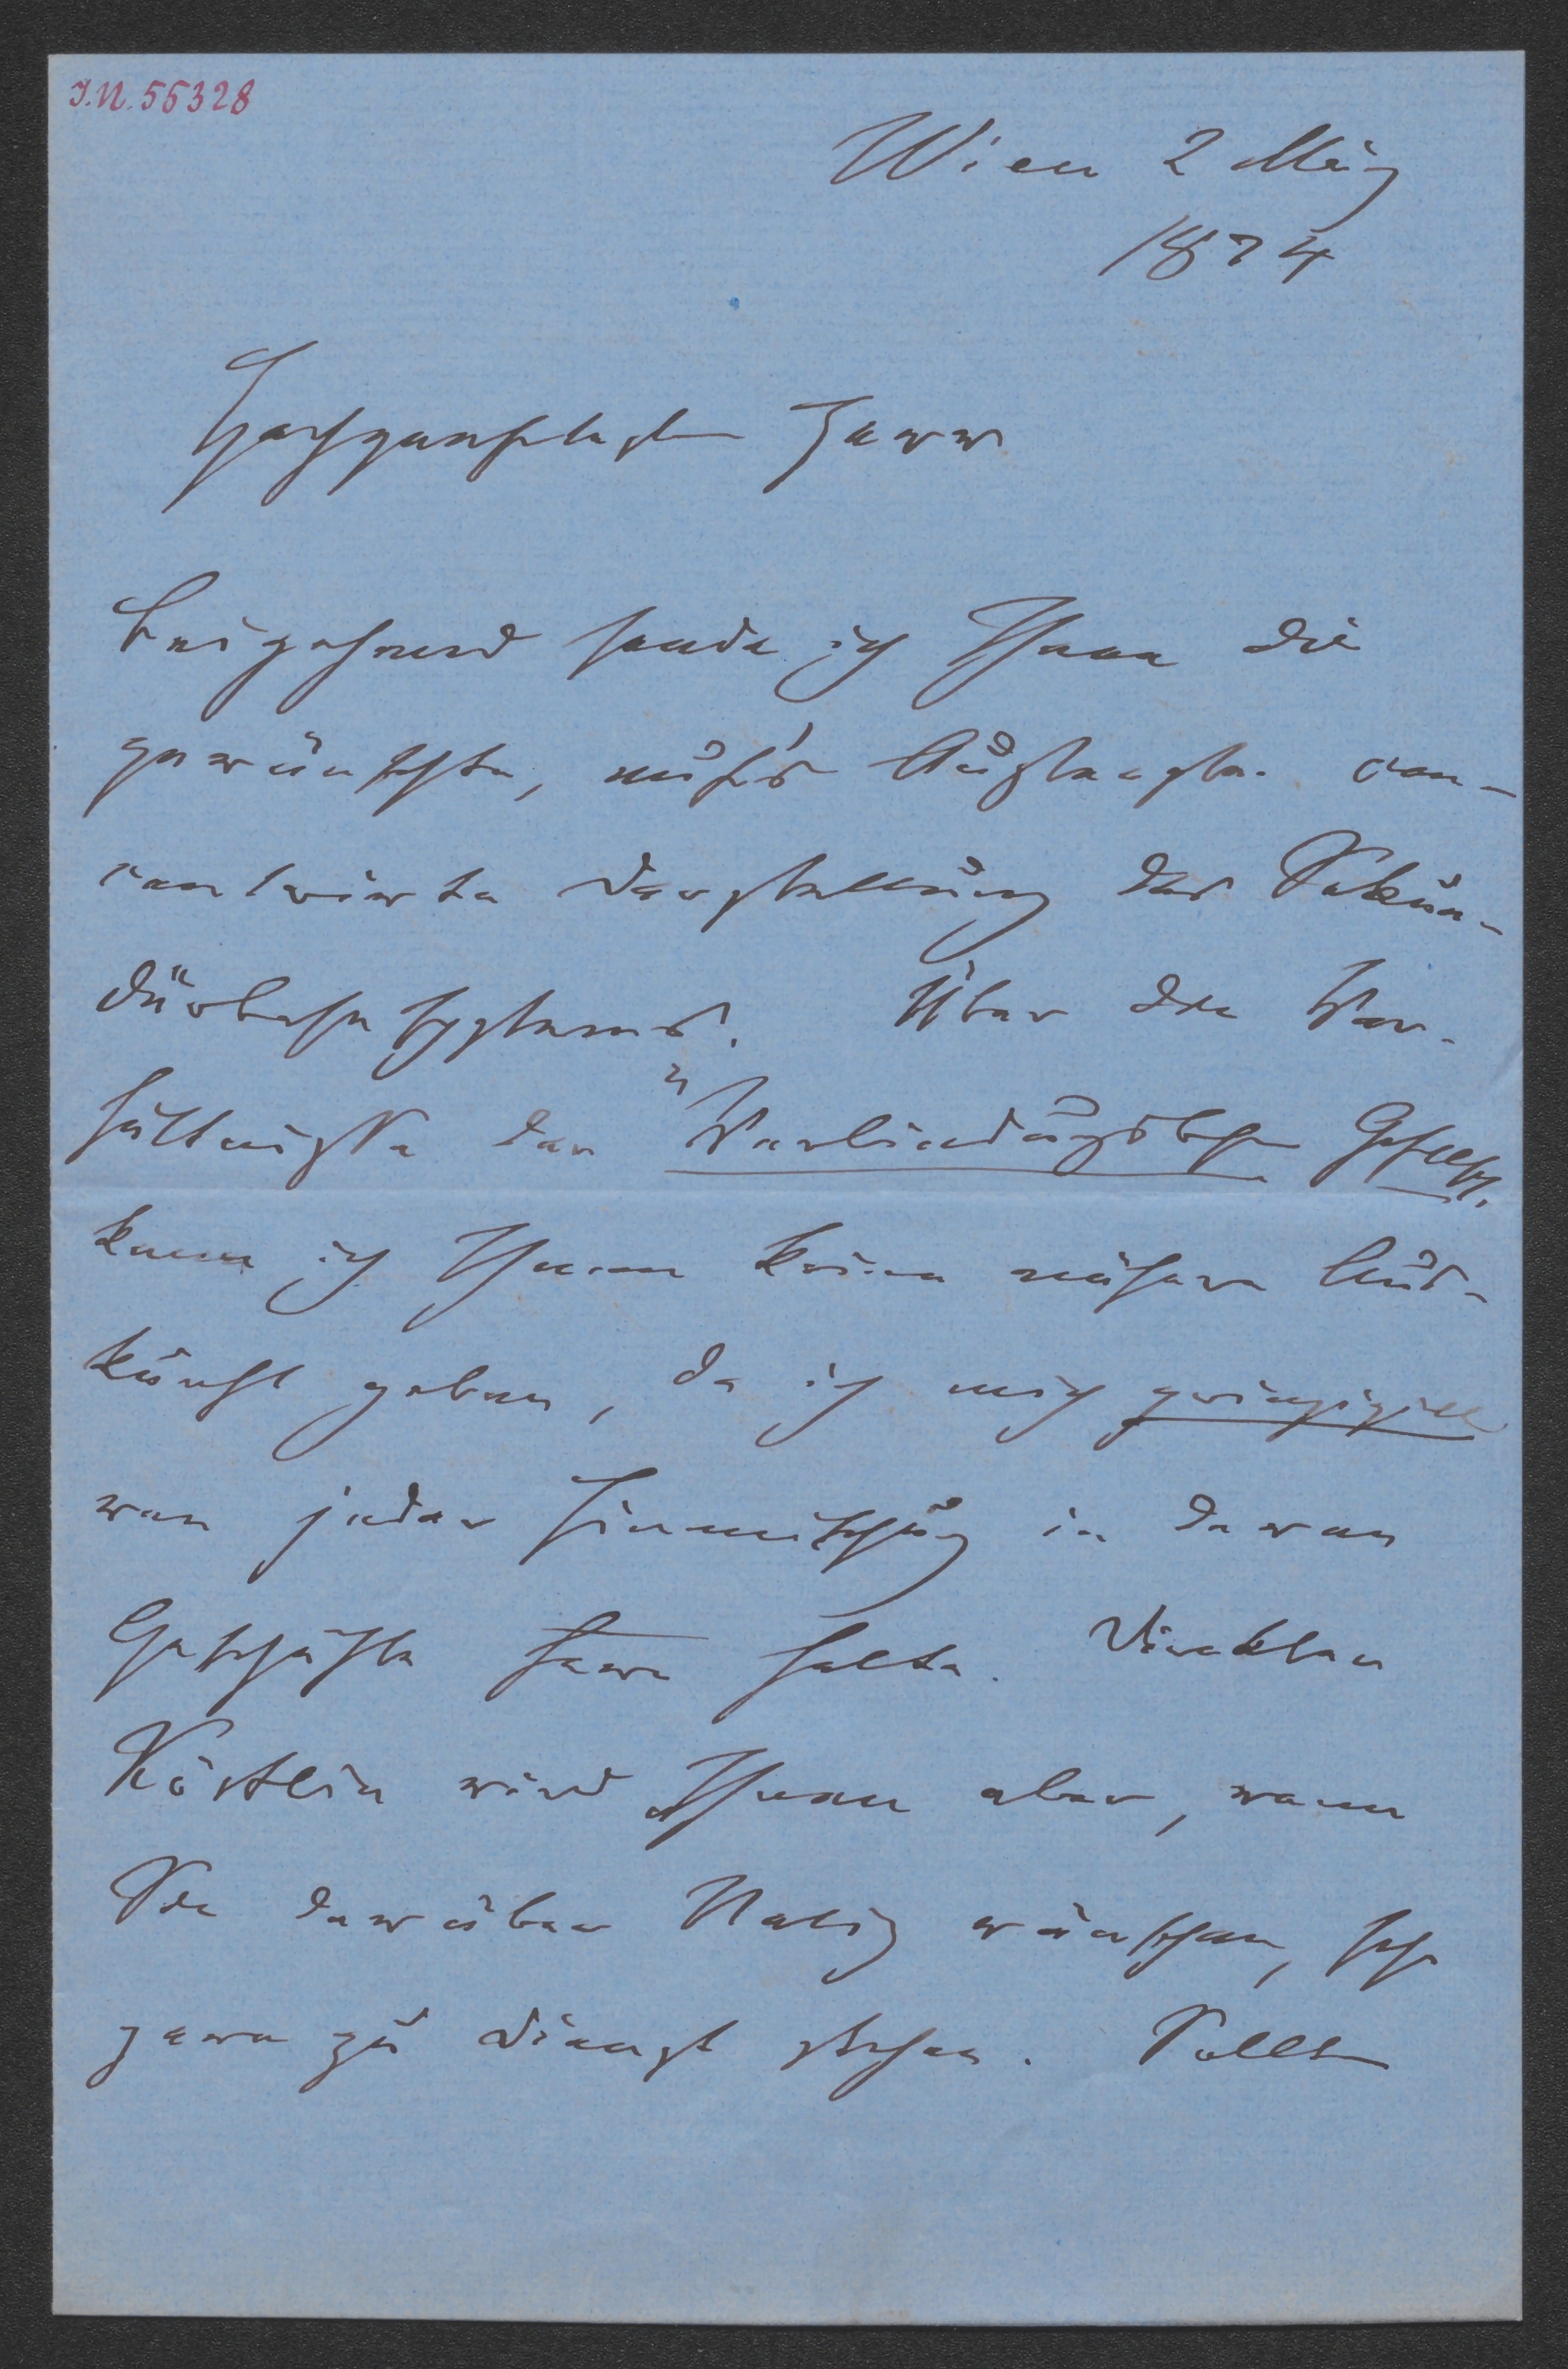 J.N. 55328
Wien 2 März
1874
Hochgeehrtester Herr
Beigehend sende ich Ihnen die
gewünschte, aufs Äußerste con-
centrirte Darstellung des Sekun-
därbahnsystems. Über die Ver-
hältnisse der "Verbindungsbahn Gesellsch.
kann ich Ihnen keine nähere Aus-
kunft geben, da ich mich prinzipiell
von jeder Einmischung in deren
Geschäfte fern halte. Direktor
Köstlin wird Ihnen aber, wenn
Sie darüber Notiz wünschen, sehr
gern zu Dienst stehen. Sollte